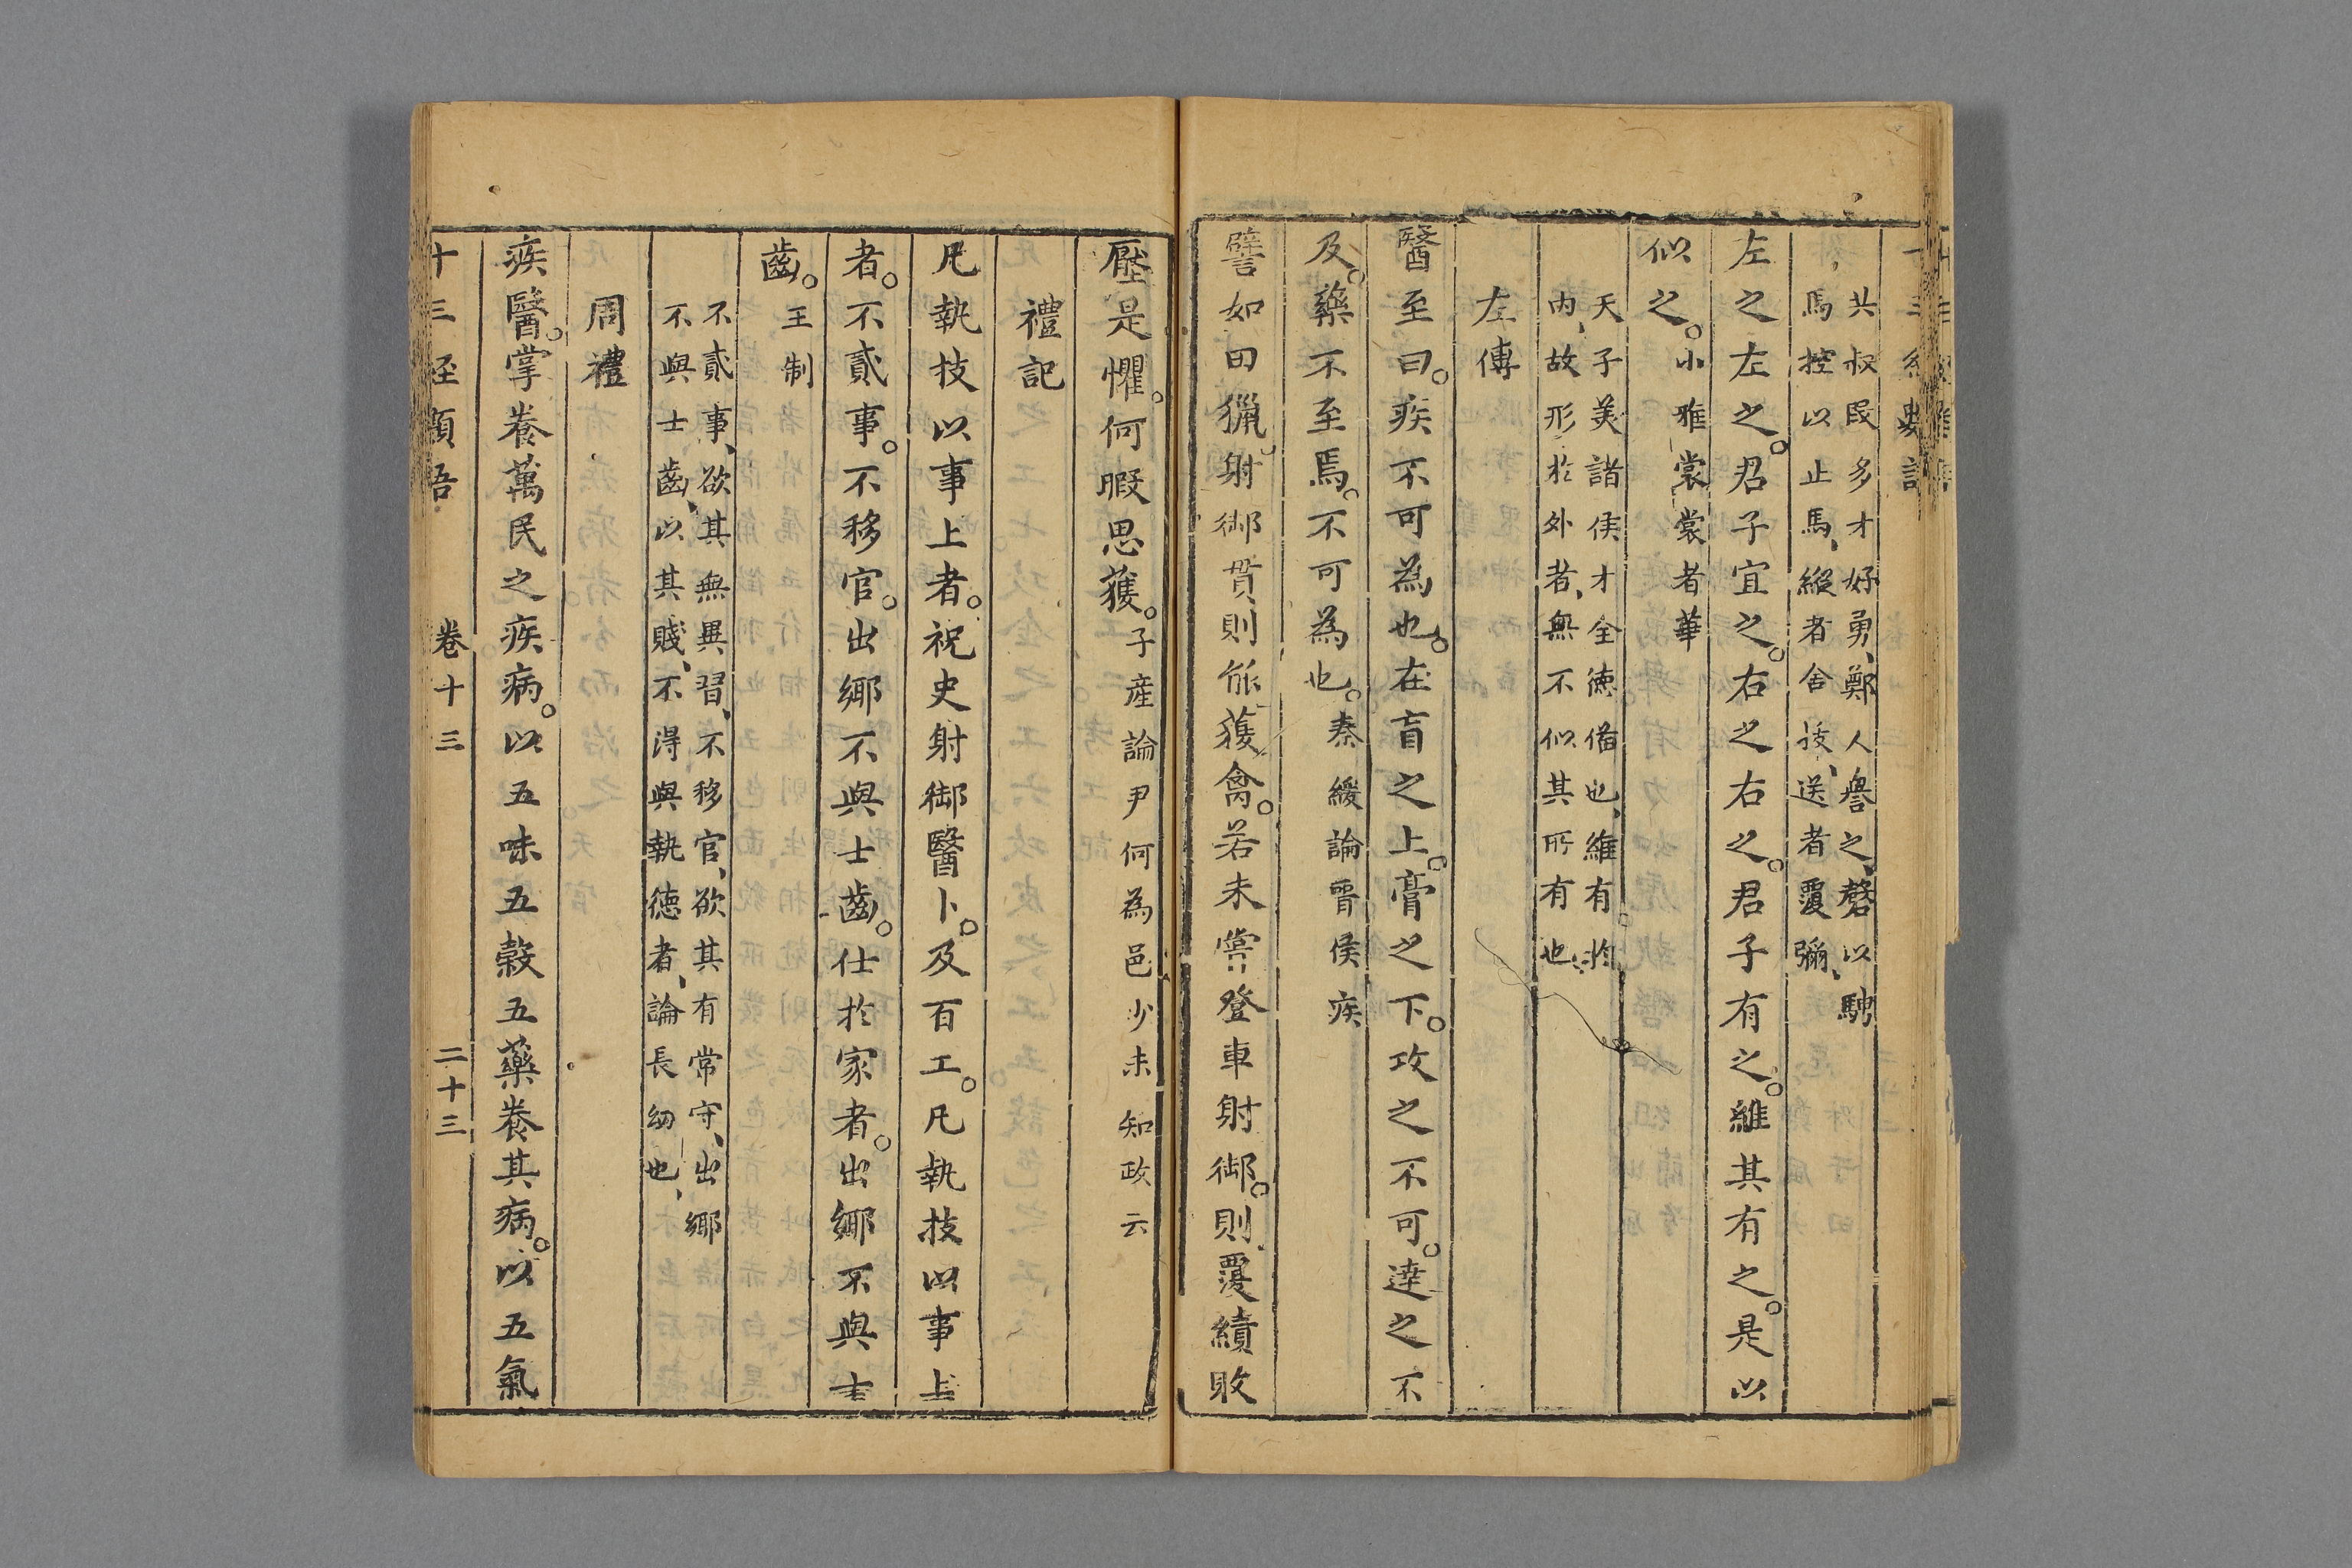 共叔段多才好勇、鄭人譽之、磬以騁
馬控以止馬、縱者舍拔、送者覆彌、
左之左之。君子宜之。右之右之。君子有之。維其有之。是以
似之。小雅裳裳者華
天子美諸侯才全德俻也、維有於
內、故形於外者、無不似其所有也、
左傳
醫至曰。疾不可為也。在肓之上。膏之下。攻之不可。達之不
及。藥不至焉。不可為也。秦緩論晉侯疾
譬如田獵。射御貫則能獲禽。若未嘗登車射御。則覆績敗
壓是懼。何暇思獲。子產論尹何為邑少未知政云
禮記
凡執技以事上者。祝史射御醫卜。及百工。凡執技以事上
者。不貳事。不移官。出鄉不與士齒。仕於家者。出鄉不與士
齒。王制
不貳事、欲其無異習、不移官、欲其有常守、出鄉
不與士齒、以其賤、不得與執德者、論長幼也、
周禮
疾醫。掌養萬民之疾病。以五味五穀五藥養其病。以五氣
十三經類語 卷十三 二十三